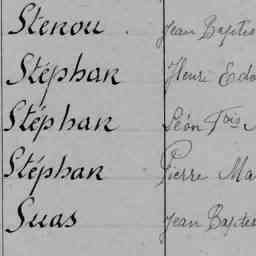 Stenou . Jean Baptis
Stéphan Henri Edo
Stéphan Léon Fois
Stéphan Pierre Ma
Suas Jean Baptis